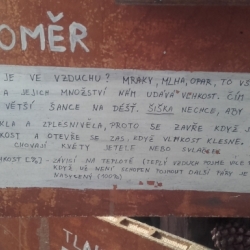 OMĚR
JE VE VZDUCHU? MRAKY, MLHA, OPAR, TO VŠ
A JEJICH MNOŽSTVÍ NÁM UDÁVÁ VLHKOST. ČÍM
VĚTŠÍ ŠANCE NA DÉŠŤ. ŠIŠKA NECHCE, ABY
KLA A ZPLESNIVĚLA, PROTO SE ZAVŘE KDYŽ J
KOST A OTEVŘE SE ZAS, KDYŽ VLHKOST KLESNE.
CHOVAJÍ KVĚTY JETELE NEBO
HKOST [%] - ZÁVISÍ NA TEPLOTĚ (TEPLÝ VZDUCH POJME VÍCE
KDYŽ UŽ NENÍ SCHOPEN POJMOUT DALŠÍ PÁRY JE
NASYCENÝ (100%)
TLA